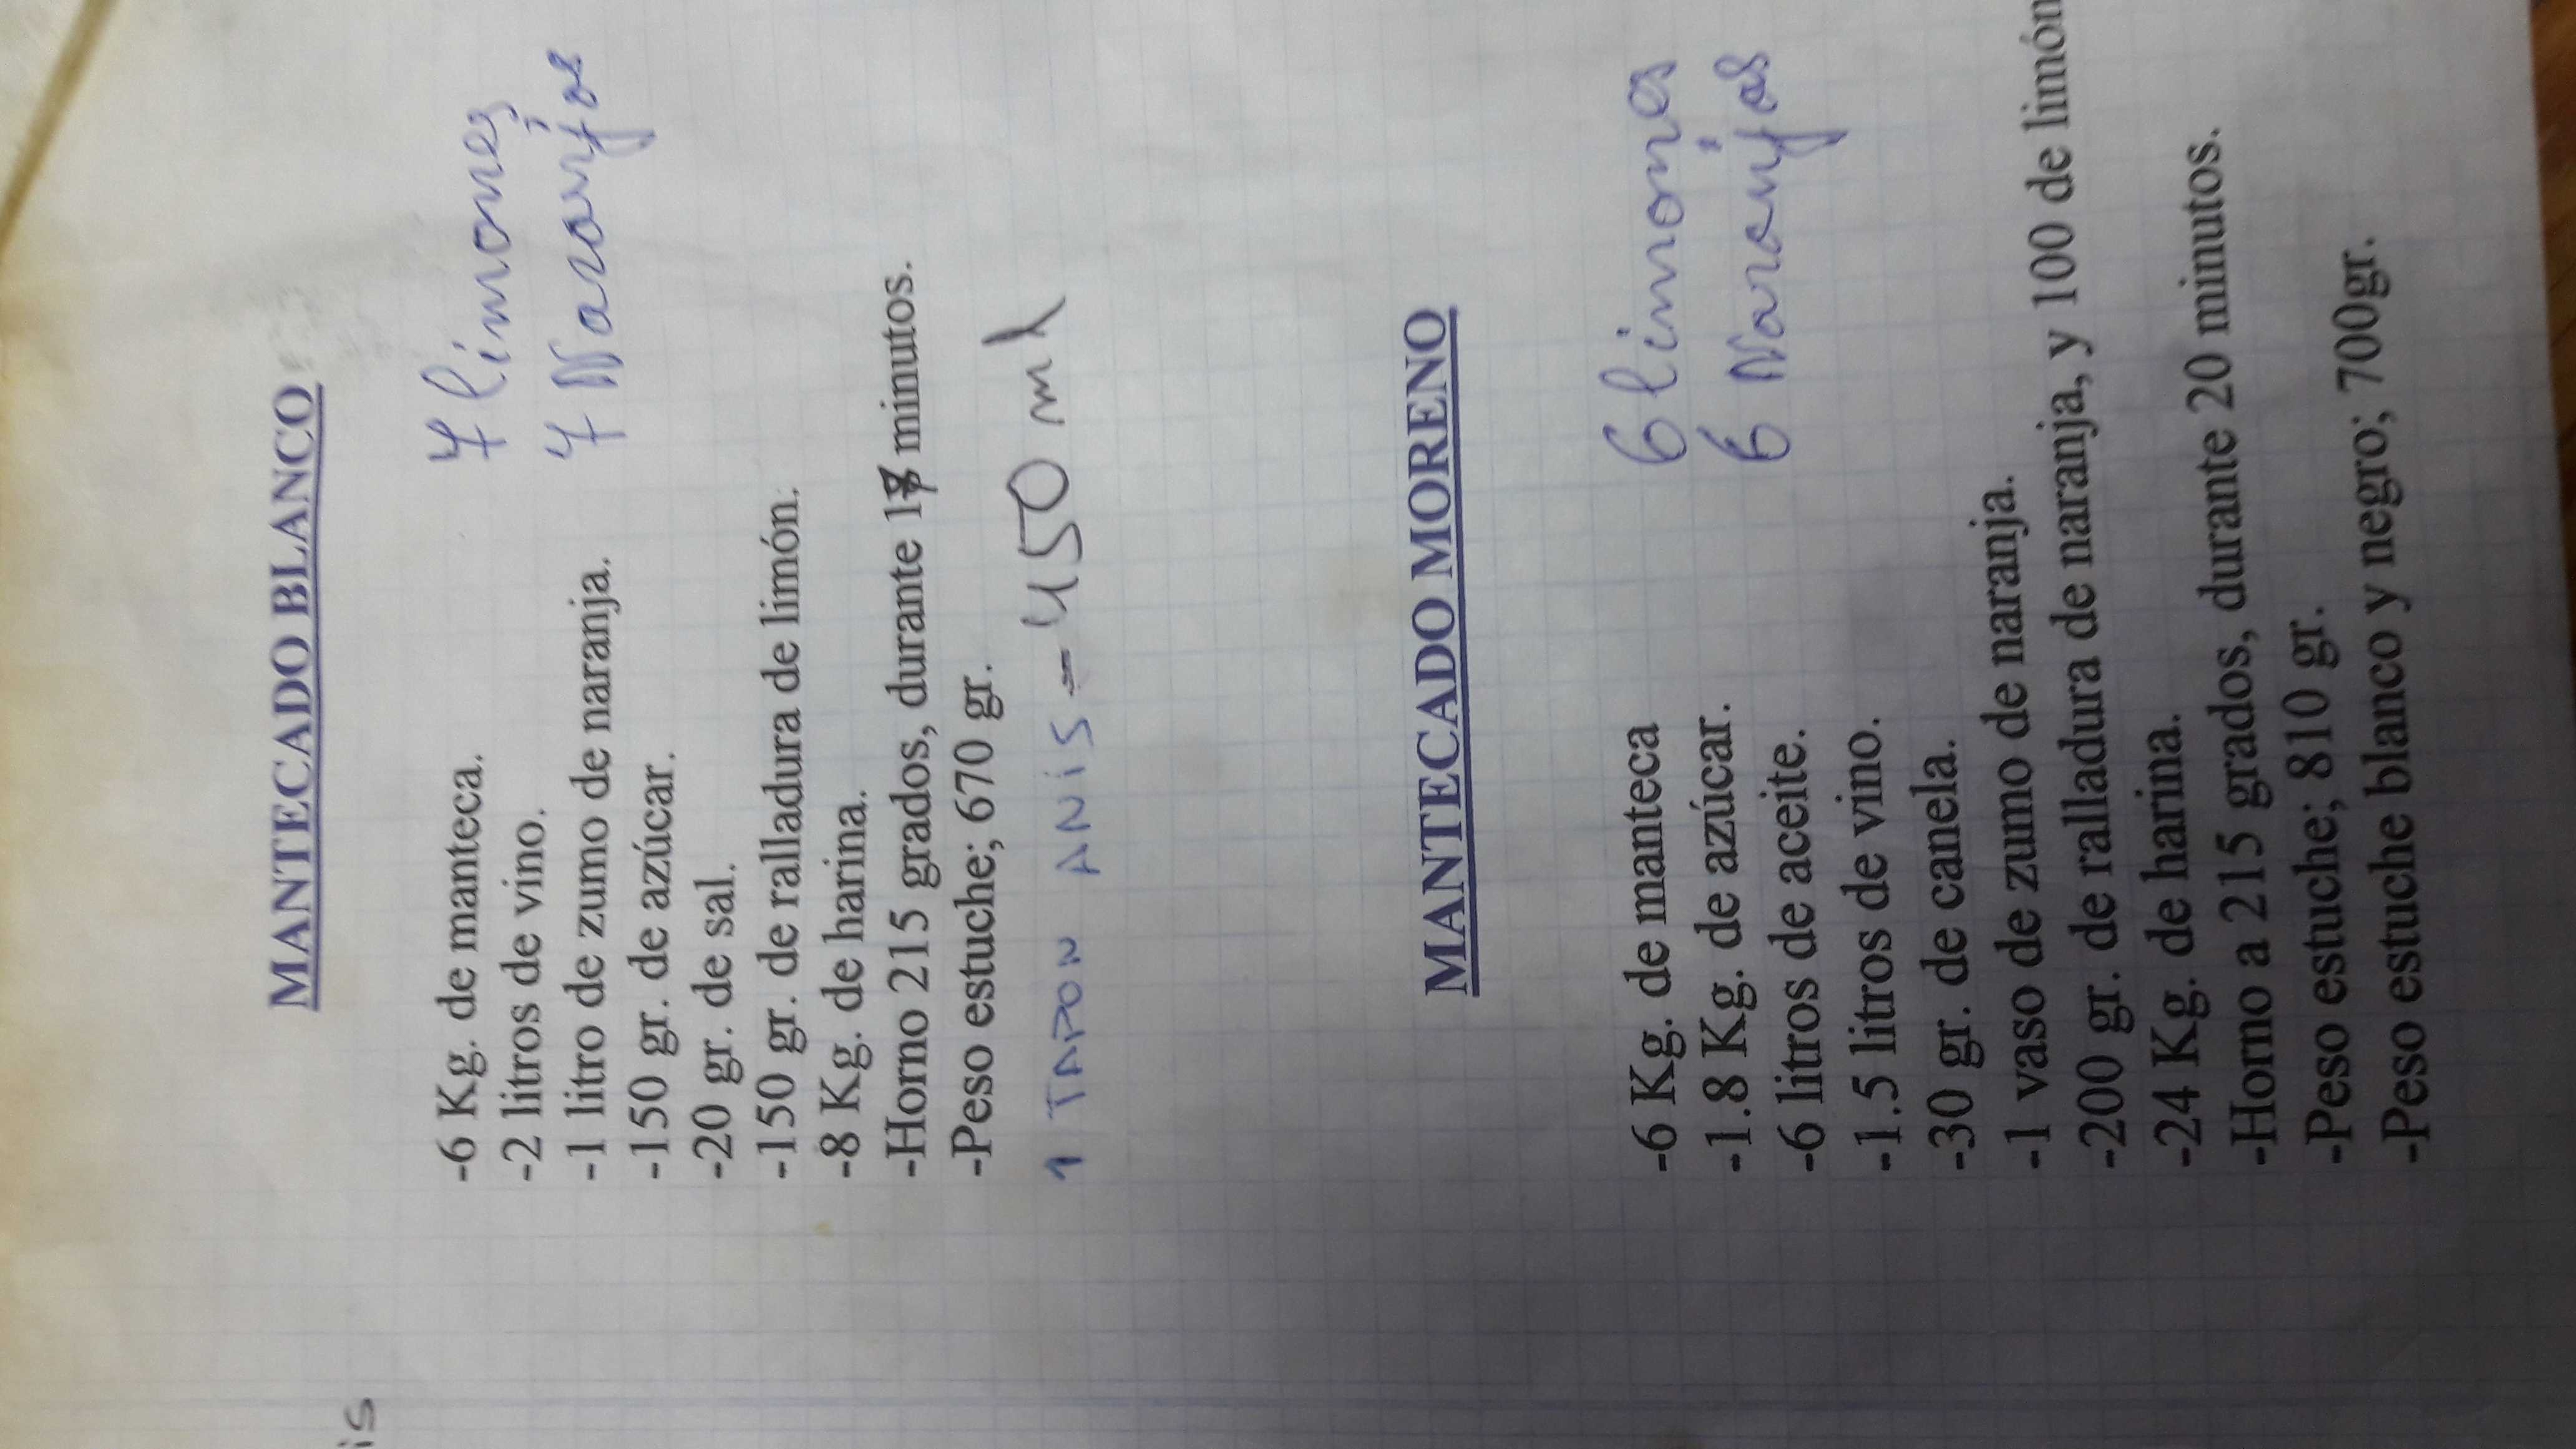 MANTECADO BLANCO
7 limones
7 Naranjas
-6 Kg. de manteca.
-2 litros de vino.
-1 litro de zumo de naranja.
-150 gr. de azúcar.
-20 gr. de sal.
-150 gr. de ralladura de limón.
-8 Kg. de harina.
-Horno 215 grados, durante minutos.
-Peso estuche; 670 gr.
1 TAPON ANiS = 450 ml
MANTECADO MORENO
6 limones
6 Naranjas
-6 Kg. de manteca
-1.8 Kg. de azúcar.
-6 litros de aceite.
-1.5 litros de vino.
-30 gr. de canela.
-1 vaso de zumo de naranja.
-200 gr. de ralladura de naranja, y 100 de limón
-24 Kg. de harina.
-Horno a 215 grados, durante 20 minutos.
-Peso estuche; 810 gr.
-Peso estuche blanco y negro; 700gr.
is